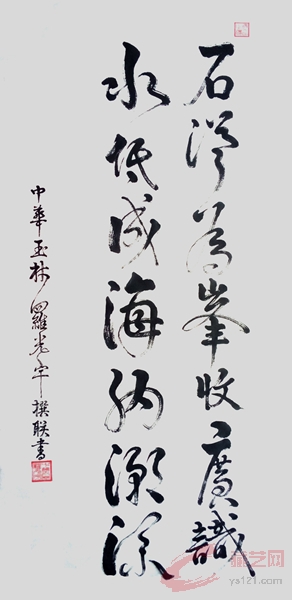 石為峯收廣識
水低成海納淵深
中華玉林羅光宇撰联書
艺网
ys121.com